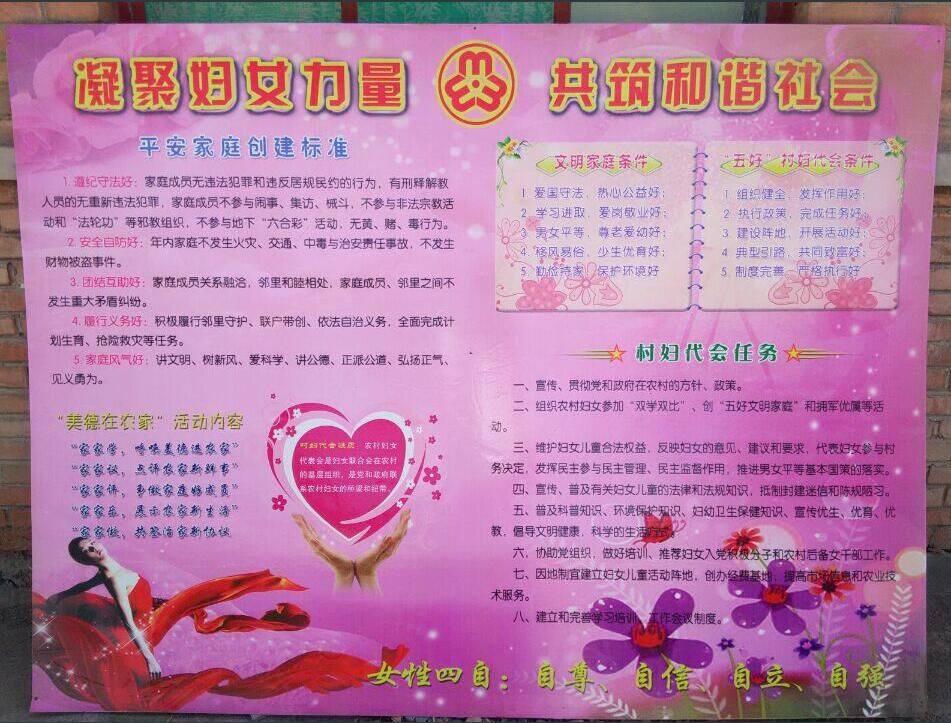 凝聚妇女力量 共筑和谐社会
平安家庭创建标准
1. 遵纪守法好：家庭成员无违法犯罪和违反居规民约的行为，有刑释解教
人员的无重新违法犯罪，家庭成员不参与闹事、集访、械斗，不参与非法宗教活
动和“法轮功”等邪教组织，不参与地下“六合彩”活动，无黄、赌、毒行为。
2. 安全自防好：年内家庭不发生火灾、交通、中毒与治安责任事故，不发生
财物被盗事件。
3. 团结互助好：家庭成员关系融洽，邻里和睦相处，家庭成员、邻里之间不
发生重大矛盾纠纷。
4. 履行义务好：积极履行邻里守护、联户带创、依法自治义务，全面完成计
划生育、抢险救灾等任务。
5. 家庭风气好：讲文明、树新风、爱科学、讲公德、正派公道、弘扬正气、
见义勇为。
“美德在农家”活动内容
“家家学，呼唤美德进农家”
“家家议，点评农家新鲜事”
“家家评，争做家庭好成员”
“家家乐，展示农家新生活”
“家家做，共签治家新协议
村妇代会性质：农村妇女
代表会是妇女联合会在农村
的基层组织，是党和政府联
系农村妇女的桥梁和纽带。
文明家庭条件
1 爱国守法、热心公益好；
2 学习进取、爱岗敬业好；
3 男女平等、尊老爱幼好；
4 移风易俗、少生优育好；
5 勤俭持家、保护环境好
“五好”村妇代会条件
1 组织健全、发挥作用好；
2 执行政策、完成任务好；
3 建设阵地、开展活动好；
4 典型引路、共同致富好；
5 制度完善、严格执行好
村妇代会任务
一、宣传、贯彻党和政府在农村的方针、政策。
二、组织农村妇女参加“双学双比”、创“五好文明家庭”和拥军优属等活
动。
三、维护妇女儿童合法权益，反映妇女的意见、建议和要求，代表妇女参与村
务决定，发挥民主参与民主管理、民主监督作用，推进男女平等基本国策的落实。
四、宣传、普及有关妇女儿童的法律和法规知识，抵制封建迷信和陈规陋习。
五、普及科学知识、环境保护知识、妇幼卫生保健知识、宣传优生、优育、优
教，倡导文明健康，科学的生活方式。
六、协助党组织，做好培训、推荐妇女入党积极分子和农村后备女干部工作。
七、因地制宜建立妇女儿童活动阵地，创办经费基地，提高市场信息和农业技
术服务。
八、建立和完善学习培训、工作会议制度。
女性四自：自尊、自信 自立、自强